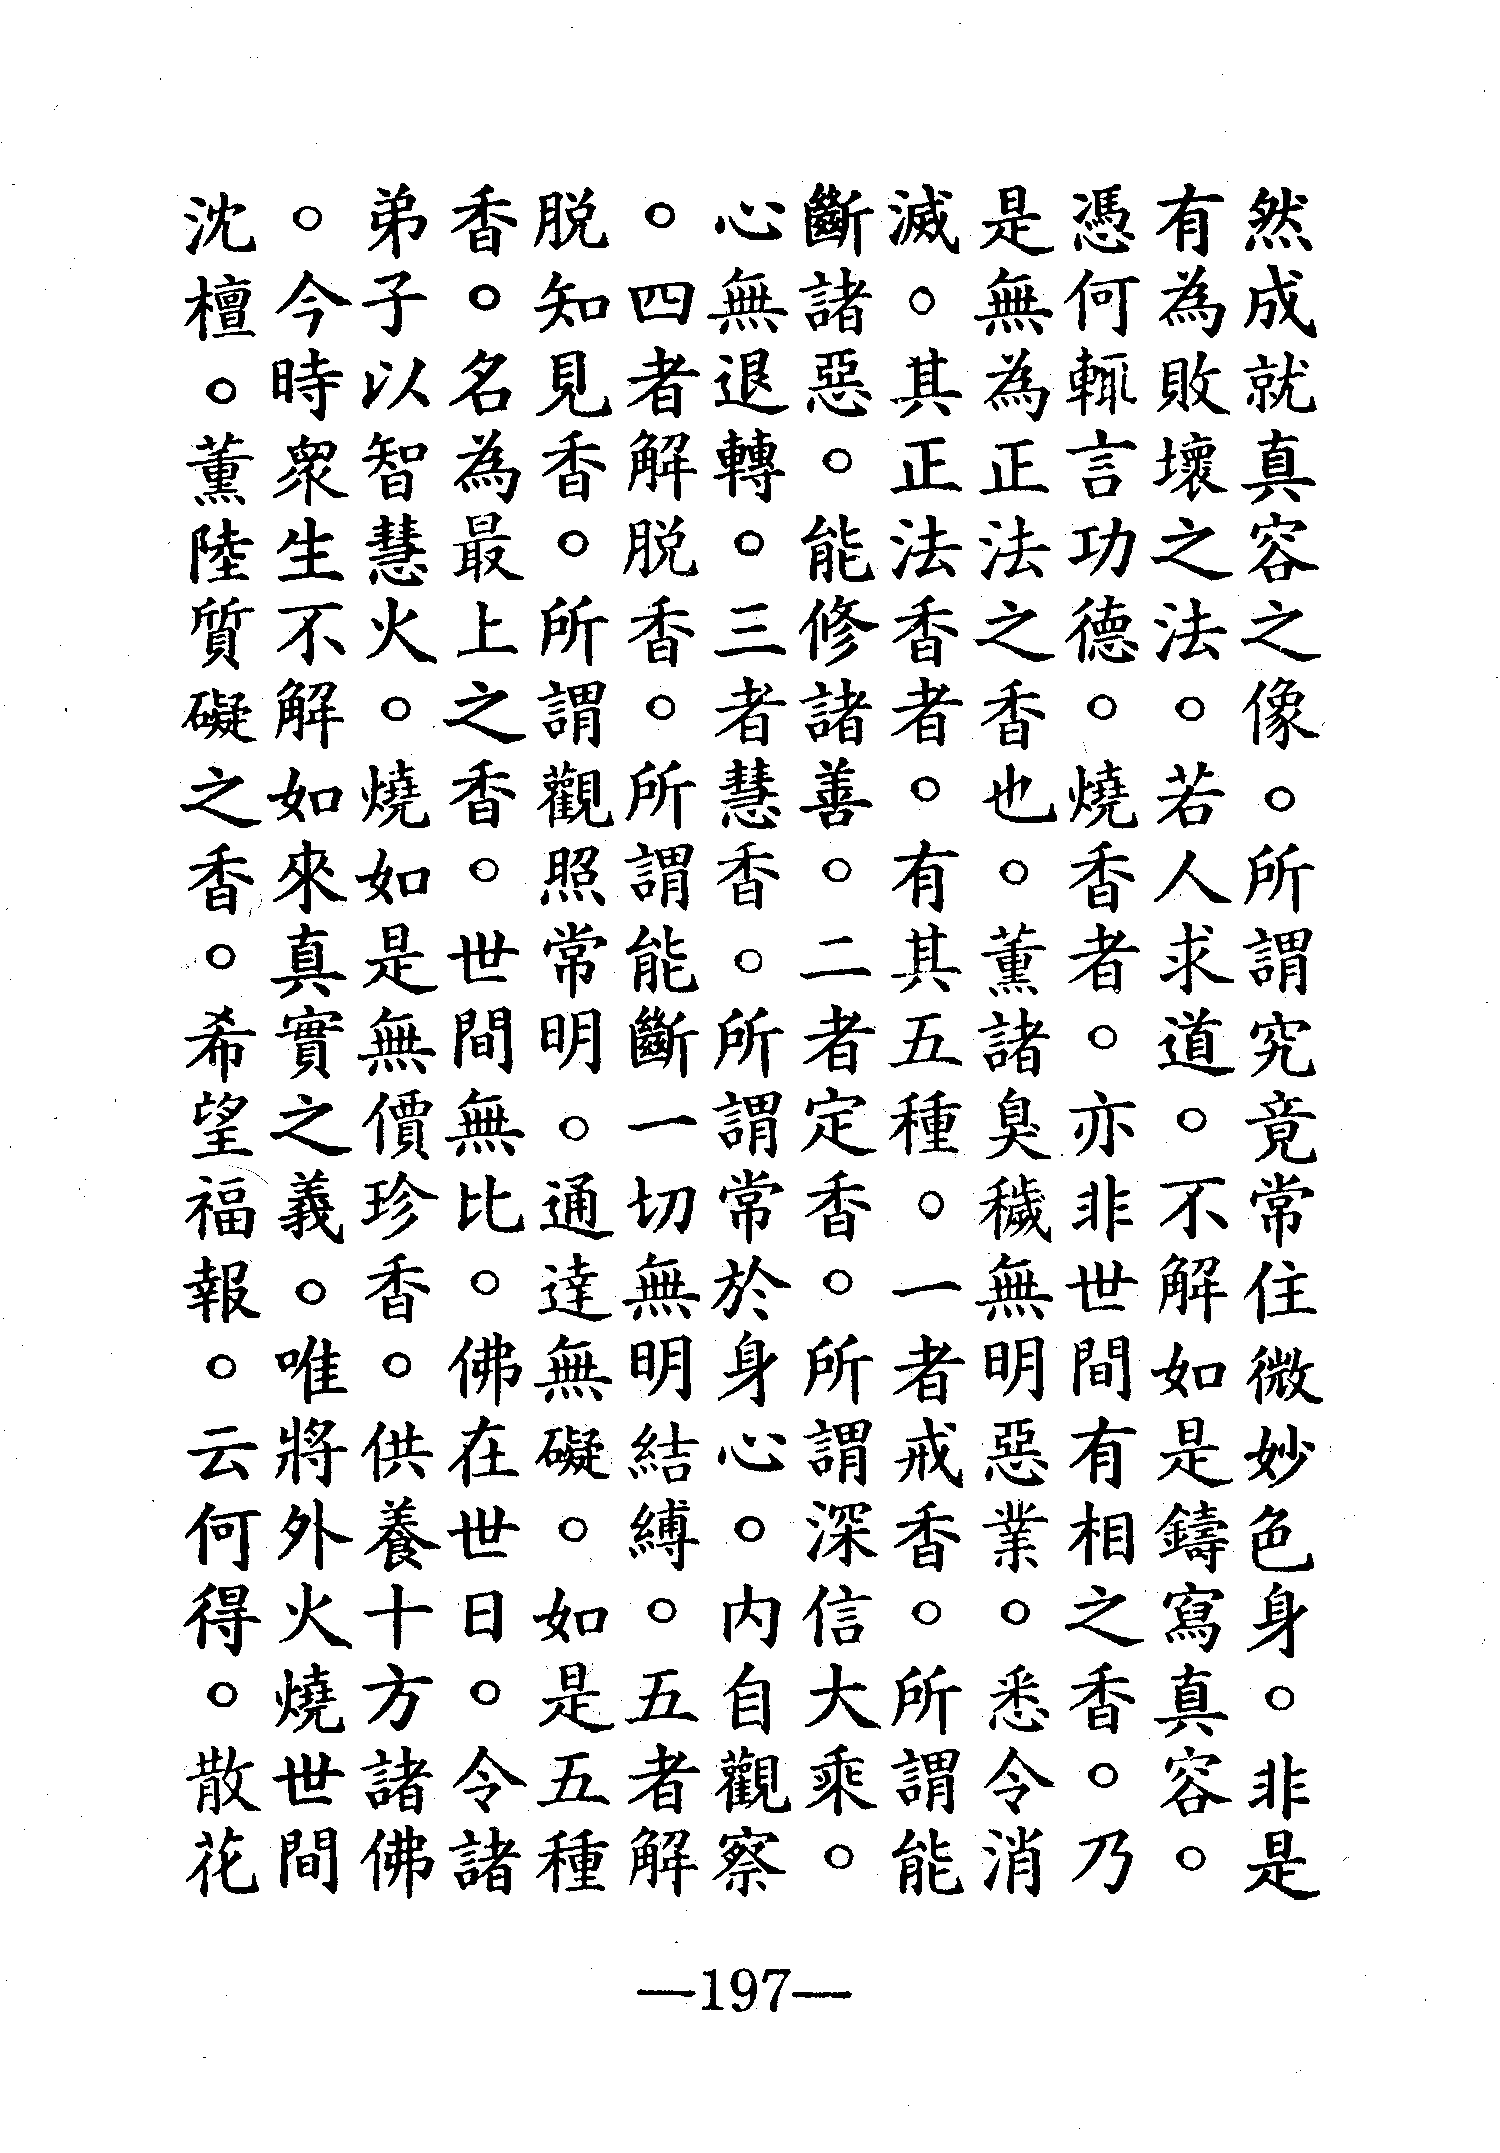 然成就真容之像。所謂究竟常住微妙色身。非是
有為敗壞之法。若人求道。不解如是鑄寫真容。
憑何輒言功德。燒香者。亦非世間有相之香。乃
是無為正法之香也。薰諸臭穢無明惡業。悉令消
滅。其正法香者。有其五種。一者戒香。所謂能
斷諸惡。能修諸善。二者定香。所謂深信大乘。
心無退轉。三者慧香。所謂常於身心。內自觀察
。四者解脫香。所謂能斷一切無明結縛。五者解
脫知見香。所謂觀照常明。通達無礙。如是五種
香。名為最上之香。世間無比。佛在世日。令諸
弟子以智慧火。燒如是無價珍香。供養十方諸佛
。今時眾生不解如來真實之義。唯將外火燒世間
沈檀。薰陸質礙之香。希望福報。云何得。散花
—197—